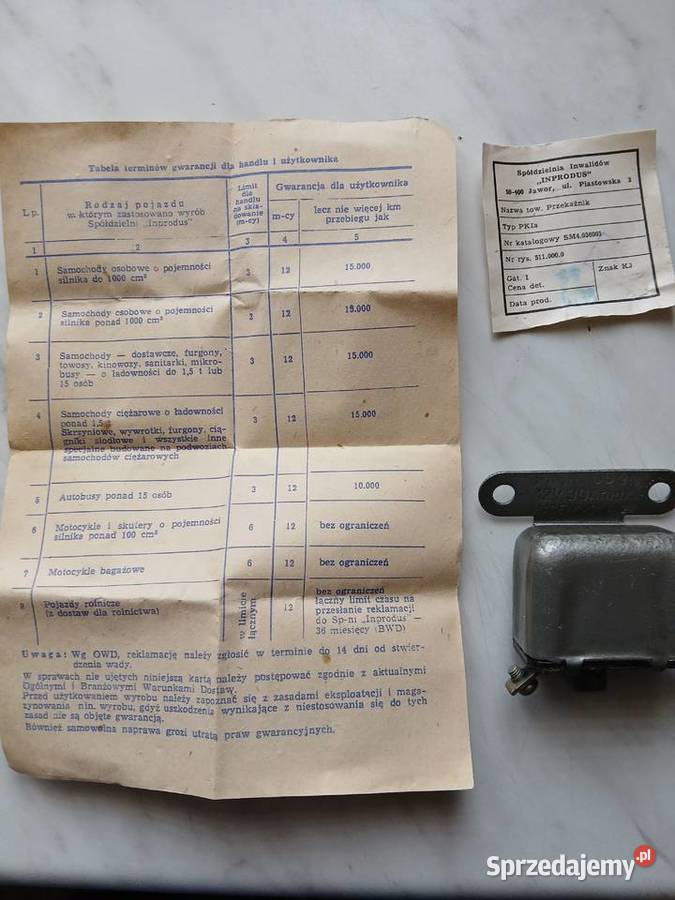 Tabela terminów gwarancji dla handlu i użytkownika
Lp.
Rodzaj pojazdu
w którym zastosowano wyrób
Spółdzielni „Inprodus"
Limit
dla
handlu
na skła-
dowanie
(m-cy)
Gwarancja dla użytkownika
m-cy
lecz nie więcej km
przebiegu jak
1 2 3 4 5
1 Samochody osobowe o pojemności
silnika do 1000 cm³ 3 12 15.000
2 Samochody osobowe o pojemności
silnika ponad 1000 cm³ 3 12 15.000
3 Samochody — dostawcze, furgony,
towosy, kinowozy, sanitarki, mikro-
busy — o ładowności do 1,5 t lub
15 osób 3 12 15.000
4 Samochody ciężarowe o ładowności
ponad 1,5 t
Skrzyniowe, wywrotki, furgony, cią-
gniki siodłowe i wszystkie inne
specjalne budowane na podwoziach
samochodów ciężarowych 3 12 15.000
5 Autobusy ponad 15 osób 3 12 10.000
6 Motocykle i skutery o pojemności
silnika ponad 100 cm³ 6 12 bez ograniczeń
7 Motocykle bagażowe 6 12 bez ograniczeń
8 Pojazdy rolnicze
(z dostaw dla rolnictwa)
w limicie
łącznym
12
bez ograniczeń
łączny limit czasu na
przesłanie reklamacji
do Sp-ni „Inprodus" —
36 miesięcy (BWD)
Uwaga: Wg OWD, reklamację należy zgłosić w terminie do 14 dni od stwier-
dzenia wady.
W sprawach nie ujętych niniejszą kartą należy postępować zgodnie z aktualnymi
Ogólnymi i Branżowymi Warunkami Dostaw.
Przed użytkowaniem wyrobu należy zapoznać się z zasadami eksploatacji i maga-
zynowania nin. wyrobu, gdyż uszkodzenia wynikające z niestosowania się do tych
zasad nie są objęte gwarancją.
Również samowolna naprawa grozi utratą praw gwarancyjnych.
Spółdzielnia Inwalidów
„INPRODUS"
58-400 Jawor, ul. Piastowska 3
Nazwa tow. Przekaźnik
Typ PK1a
Nr katalogowy SM4.036003
Nr rys. 511.000.0
Gat. I
Znak KJ
Cena det.
Data prod.
12V
Sprzedajemy.pl